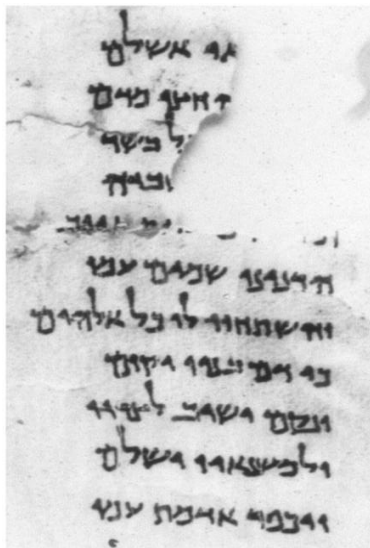 אי אשלם
חצי מדם
ל בשר
הרנינו שמים עמו
והשתחוו לו כל אלהים
כי דם בניו יקום
ונקם ישיב לצריו
ולמשנאיו ישלם
ויכפר אדמת עמו